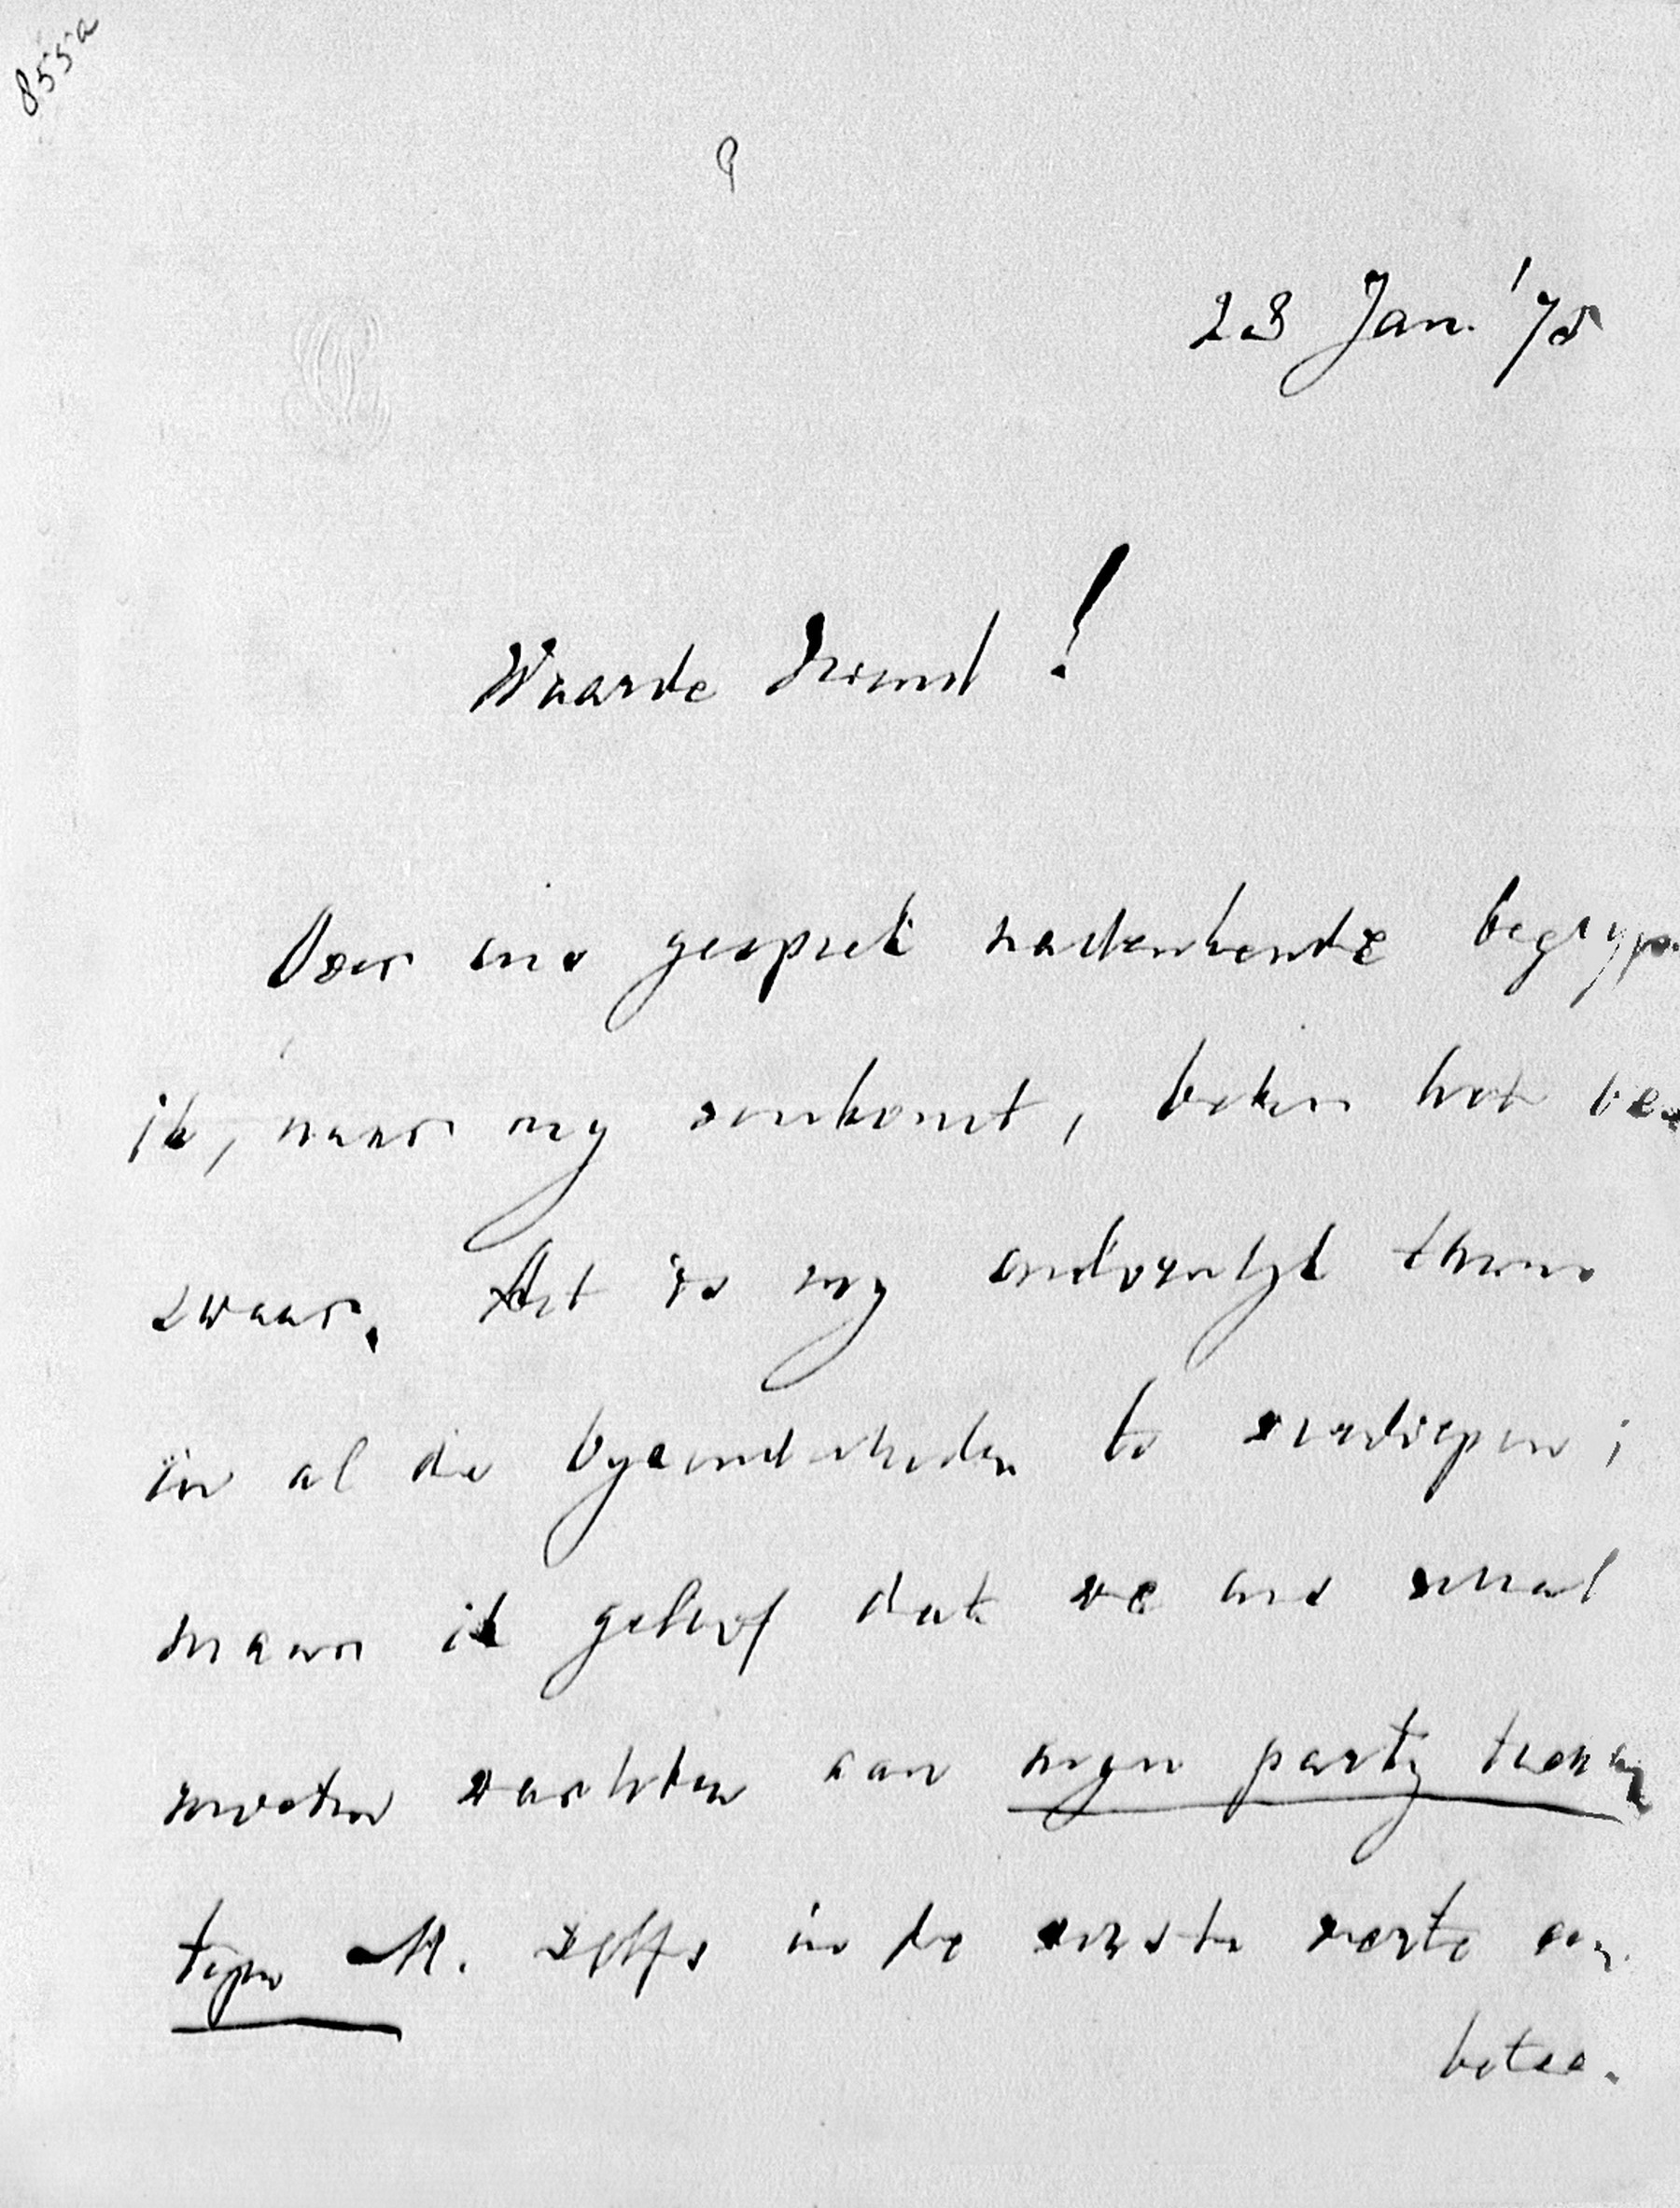 855a
9
23 Jan. '78
Waarde Vriend!
Over ons gesprek nadenkende begryp
ik, naar my voorkomt, beter het be
zwaar. Het is my ondoenlyk thans
in al die byzonderheden te verdiepen;
maar ik geloof dat we ons vooral
moeten wachten aan myn party
tegen M. zelfs in de verste verte